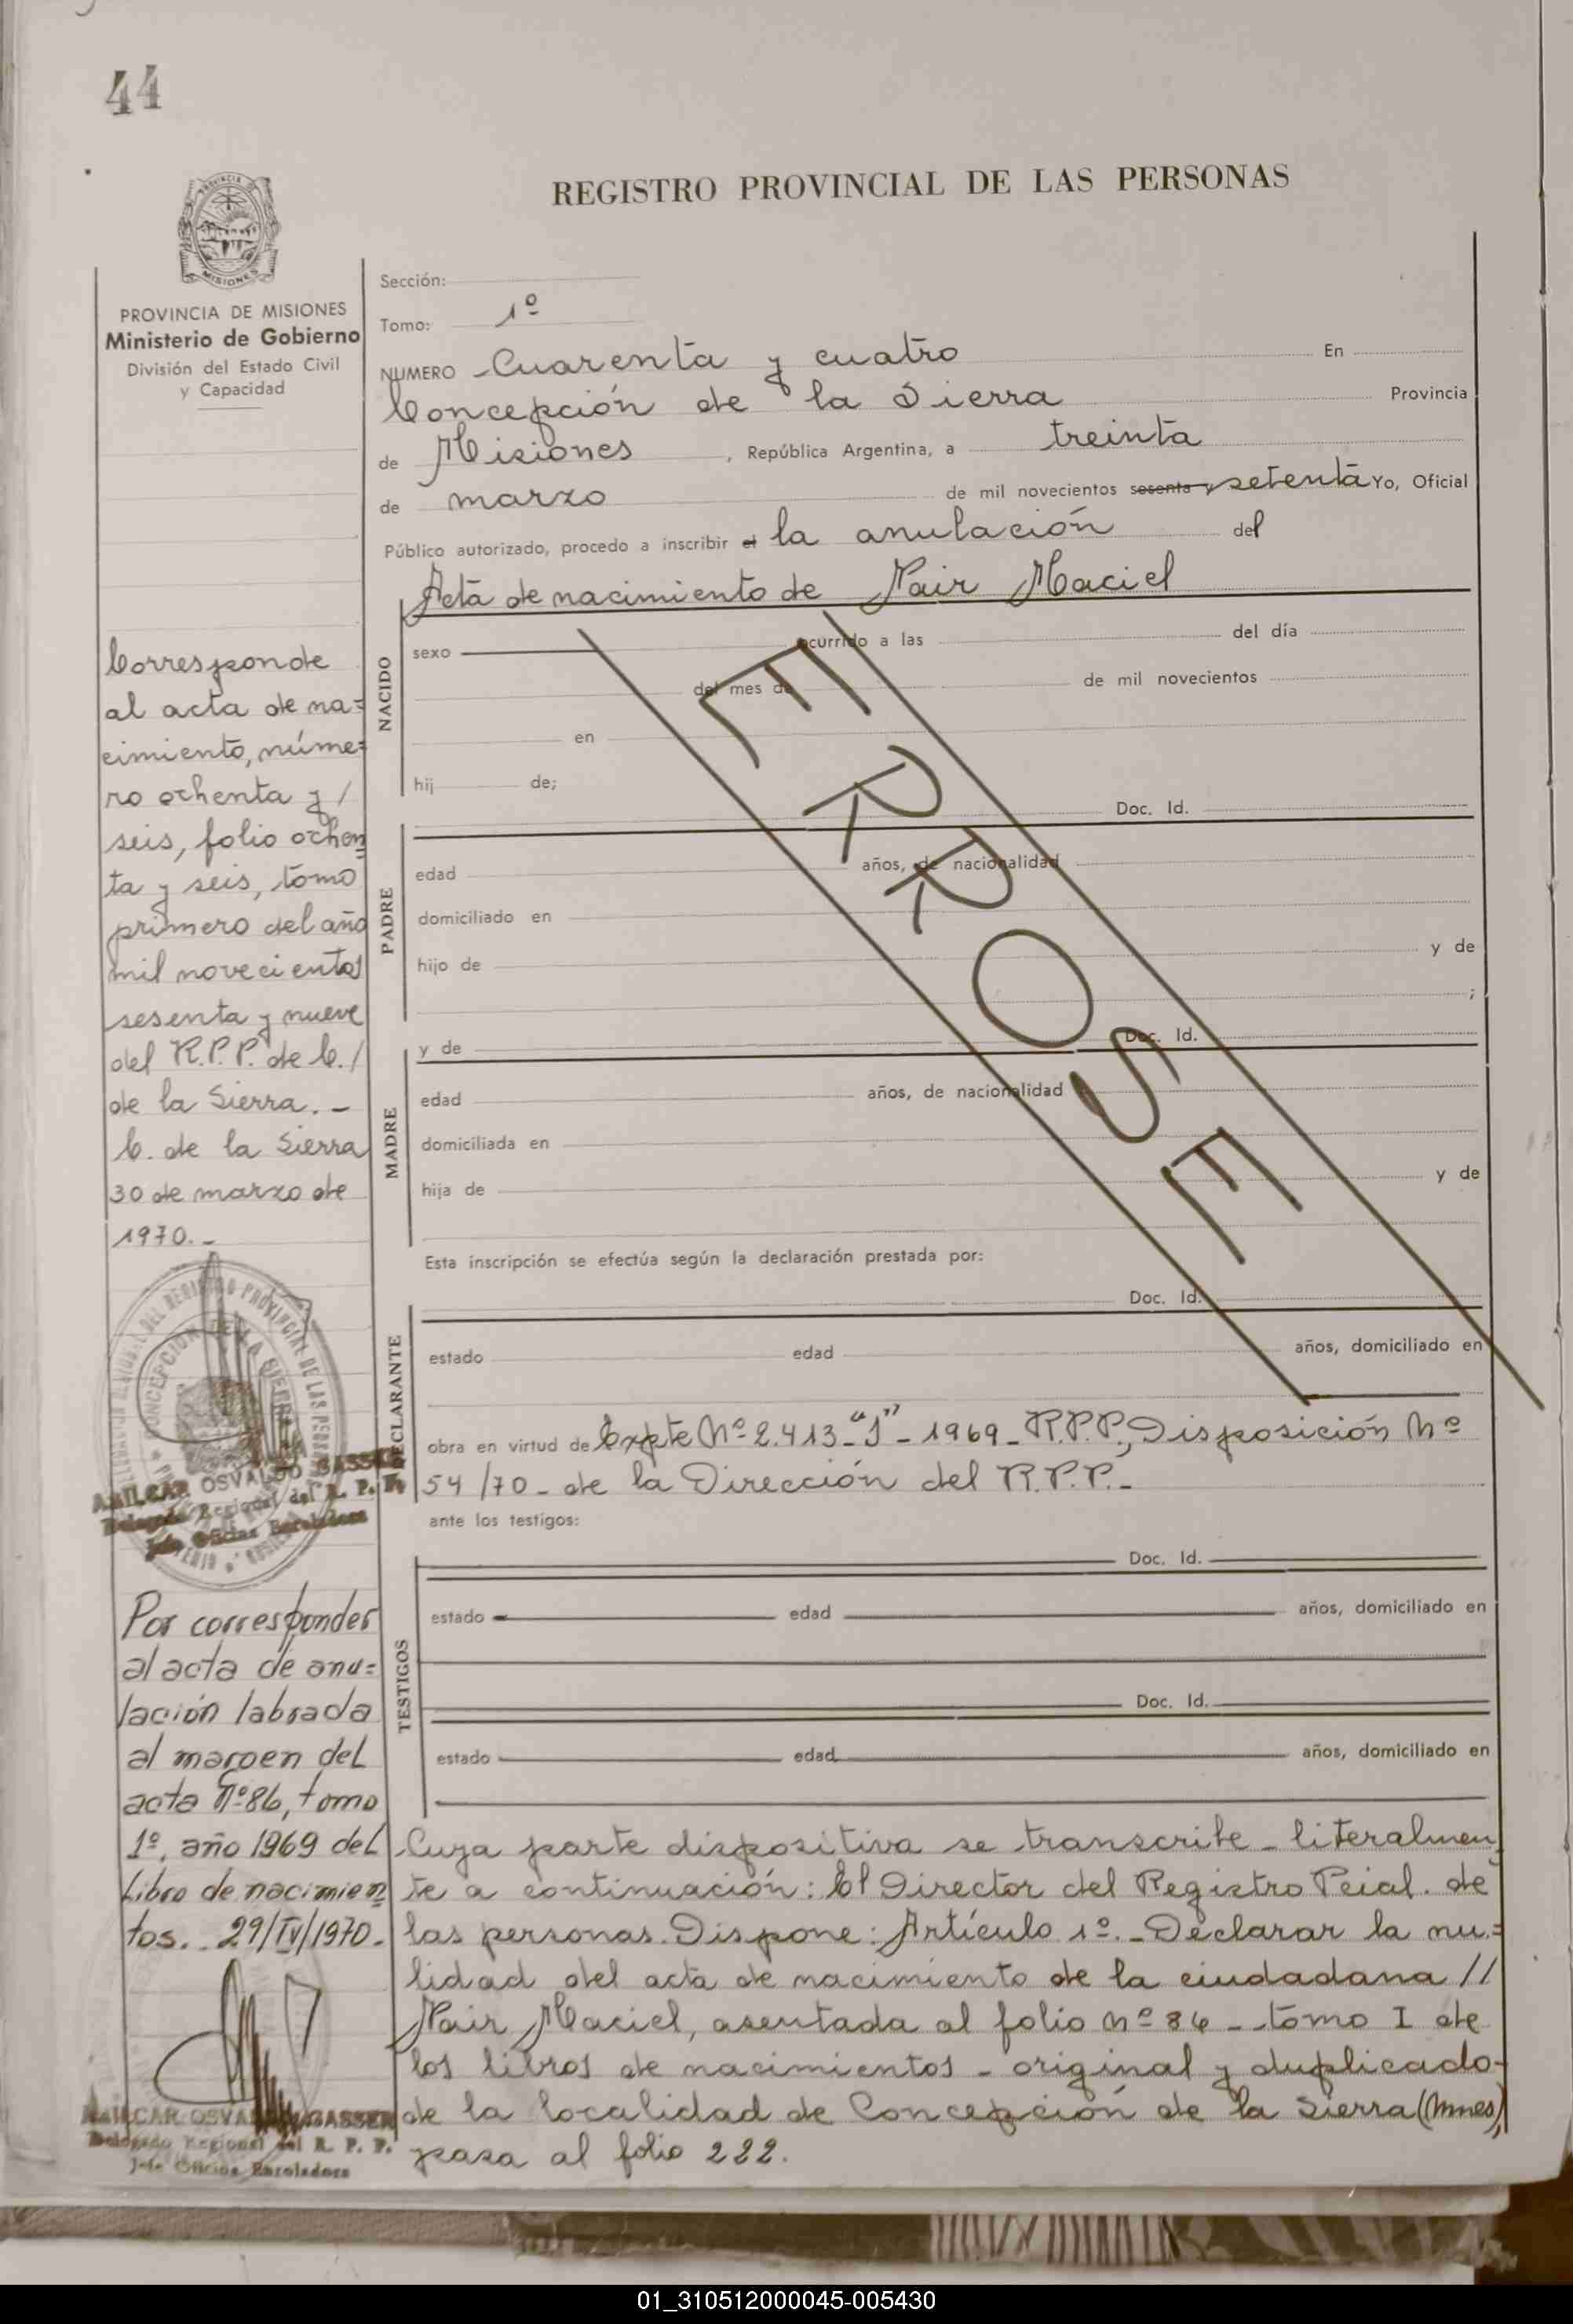 44
REGISTRO PROVINCIAL DE LAS PERSONAS
PROVINCIA DE MISIONES
Ministerio de Gobierno
División del Estado Civil
y Capacidad
Sección:
Tomo: 1º
NUMERO Cuarenta y cuatro En
Concepción de la Sierra Provincia
de Misiones , República Argentina, a treinta
de marzo de mil novecientos sesenta y setenta Yo, Oficial
Público autorizado, procedo a inscribir el la anulación del
Acta de nacimiento de Nair Maciel
NACIDO
sexo ocurrido a las del día
del mes de de mil novecientos
en
hij de;
Doc. Id.
PADRE
edad años, de nacionalidad
domiciliado en
hijo de y de
;
y de Doc. Id.
MADRE
edad años, de nacionalidad
domiciliada en
hija de y de
ERROSE
Esta inscripción se efectúa según la declaración prestada por:
Doc. Id.
DECLARANTE
estado edad años, domiciliado en
obra en virtud de Expte Nº 2.413-"J"-1969-R.P.P., Disposición Nº
54/70-de la Dirección del R.P.P.-
ante los testigos:
TESTIGOS
Doc. Id.
estado edad años, domiciliado en
Doc. Id.
estado edad años, domiciliado en
Cuya parte dispositiva se transcribe-literalmen
te a continuación: El Director del Registro Pcial. de
las personas. Dispone: Artículo 1º.-Declarar la nu=
lidad del acta de nacimiento de la ciudadana //
Nair Maciel, asentada al folio nº 86--tomo I de
los libros de nacimientos-original y duplicado-
de la localidad de Concepción de la Sierra (Mnes),
pasa al folio 222.
Corresponde
al acta de na=
cimiento, núme=
ro ochenta y /
seis, folio ochen
ta y seis, tomo
primero del año
mil novecientos
sesenta y nueve
del R.P.P. de C./
de la Sierra.-
C. de la Sierra
30 de marzo de
1970.-
AMILCAR OSVALDO GASSER
Delegado Regional del R. P. P.
Jefe Oficina Enroladora
Por corresponder
al acta de anu=
lación labrada
al margen del
acta Nº 86, tomo
1º, año 1969 del
Libro de nacimien
tos.. 29/IV/1970.
AMILCAR OSVALDO GASSER
Delegado Regional del R. P. P.
Jefe Oficina Enroladora
01_310512000045-005430